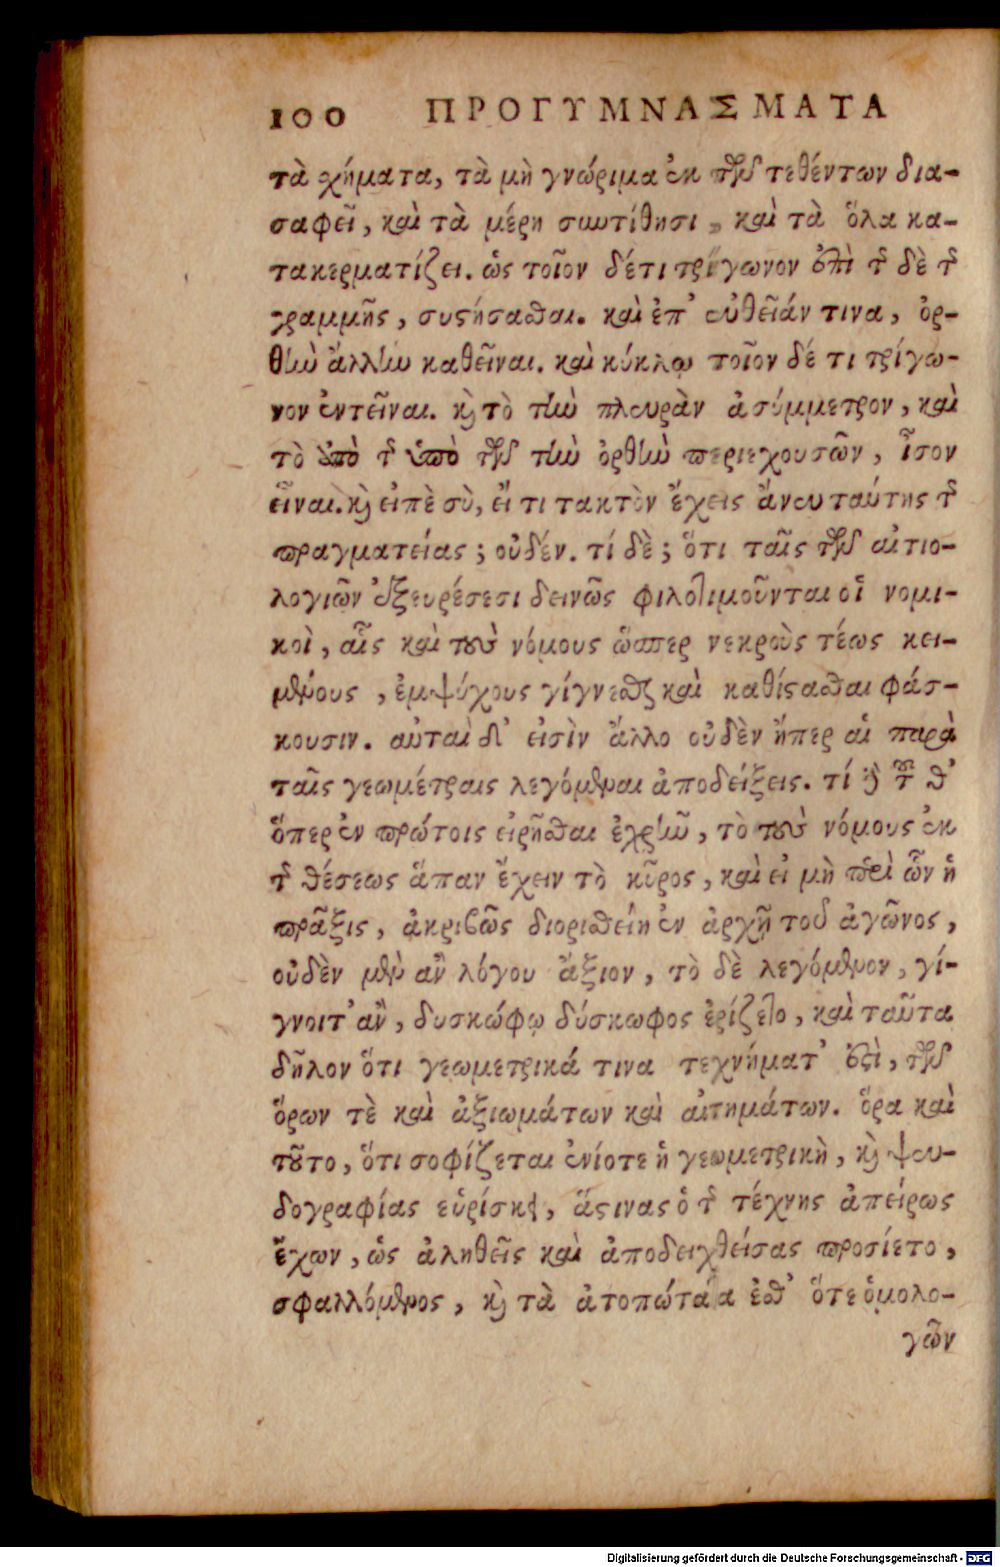 100 ΠΡΟΓΥΜΝΑΣΜΑΤΑ
τὰ χήματα, τὰ μὴ γνώριμα ἐκ τῶν τεθέντων δια-
σαφεῖ, καὶ τὰ μέρη συντίθησι, καὶ τὰ ὅλα κα-
τακερματίζει. ὡς τοῖον δέ τι τρίγωνον ἐπὶ τῆς δὲ τῆς
γραμμῆς, συστήσασθαι. καὶ ἐπ' εὐθεῖάν τινα, ὀρ-
θὴν ἄλλην καθεῖναι. καὶ κύκλῳ τοῖον δέ τι τρίγω-
νον ἐντεῖναι. καὶ τὸ τὴν πλευρὰν ἀσύμμετρον, καὶ
τὸ ὑπὸ τῆς ὑπὸ τῶν τὴν ὀρθὴν περιεχουσῶν, ἶσον
εἶναι. καὶ εἰπὲ σὺ, εἴ τι τακτὸν ἔχεις ἄνευ ταύτης τῆς
πραγματείας; οὐδέν. τί δὲ; ὅτι ταῖς τῶν αἰτιο-
λογιῶν ἐξευρέσεσι δεινῶς φιλοτιμοῦνται οἱ νομι-
κοὶ, αἷς καὶ τοὺς νόμους ὥσπερ νεκροὺς τέως κει-
μένους, ἐμψύχους γίγνεσθαι καὶ καθίστασθαι φάσ-
κουσιν. αὐταὶ δ' εἰσὶν ἄλλο οὐδὲν ἤπερ αἱ παρὰ
ταῖς γεωμέτραις λεγόμεναι ἀποδείξεις. τί δαὶ τοῦθ'
ὅπερ ἐν πρώτοις εἰρῆσθαι ἐχρῆν, τὸ τοὺς νόμους ἐκ
τῆς θέσεως ἅπαν ἔχειν τὸ κῦρος, καὶ εἰ μὴ περὶ ὧν ἡ
πρᾶξις, ἀκριβῶς διορισθείη ἐν ἀρχῇ τοῦ ἀγῶνος,
οὐδὲν μὲν ἂν λόγου ἄξιον, τὸ δὲ λεγόμενον, γί-
γνοιτ' ἂν, δυσκώφῳ δύσκωφος ἐρίζετο, καὶ ταῦτα
δῆλον ὅτι γεωμετρικά τινα τεχνήματ' ἐστὶ, τῶν
ὅρων τὲ καὶ ἀξιωμάτων καὶ αἰτημάτων. ὅρα καὶ
τοῦτο, ὅτι σοφίζεται ἐνίοτε ἡ γεωμετρικὴ, καὶ ψευ-
δογραφίας εὑρίσκει, ἅστινας ὁ τῆς τέχνης ἀπείρως
ἔχων, ὡς ἀληθεῖς καὶ ἀποδειχθείσας προσίετο,
σφαλλόμενος, καὶ τὰ ἀτοπώτατα ἐσθ' ὅτε ὁμολο-
γῶν
Digitalisierung gefördert durch die Deutsche Forschungsgemeinschaft - DFG